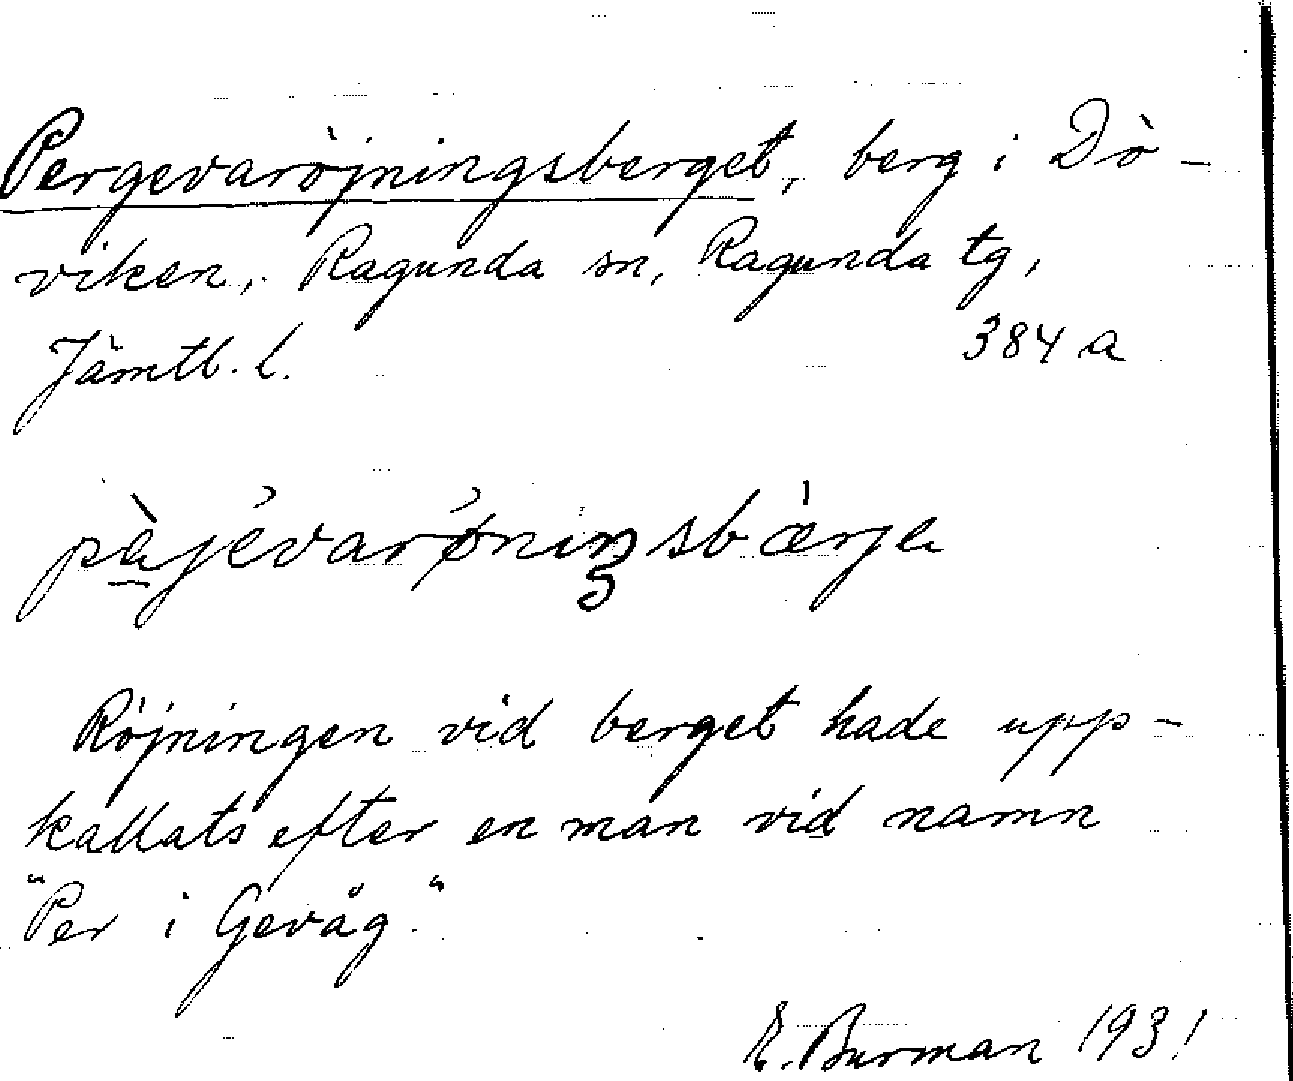 Pergevaröjningsberget, berg i Dö-
viken, Ragunda sn, Ragunda tg,
Jämtl. l. 384 a
Röjningen vid berget hade upp-
kallats efter en man vid namn
"Per i Gevåg."
E. Burman 1931